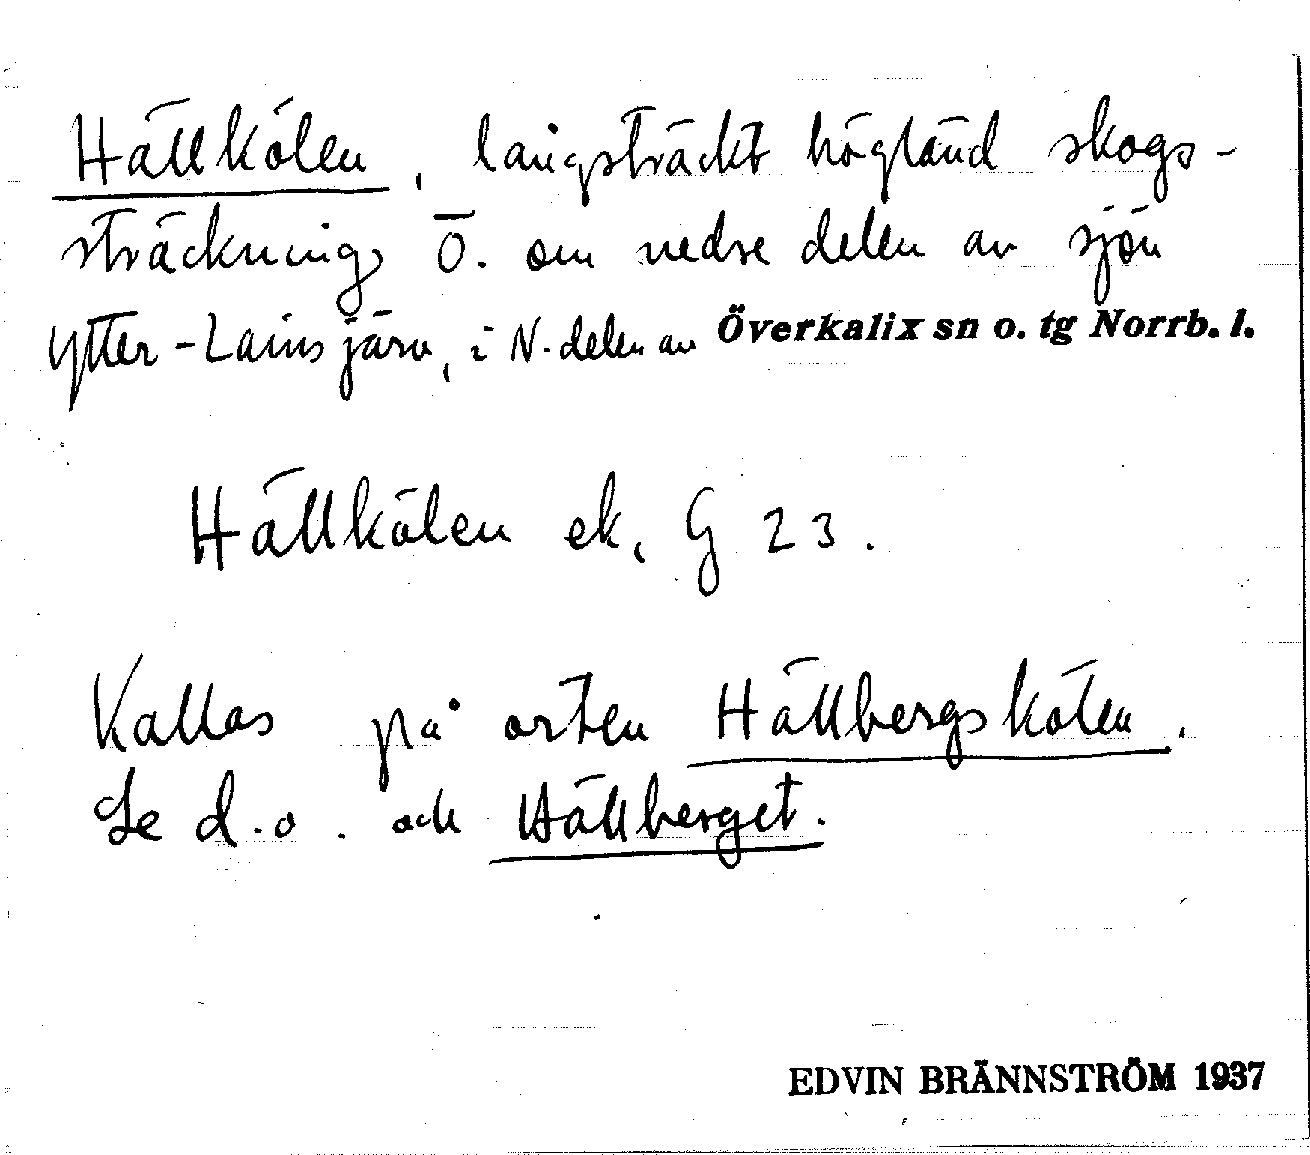 Hällkölen, långsträckt högländ skogs-
sträckning Ö. om nedre delen av sjön
Ytter-Lainsjärv, i N. delen av Överkalix sn o. tg Norrb. l.
Hällkölen ek. G 23.
Kallas på orten Hällbergskölen.
Se d.o. och Hällberget.
EDVIN BRÄNNSTRÖM 1937